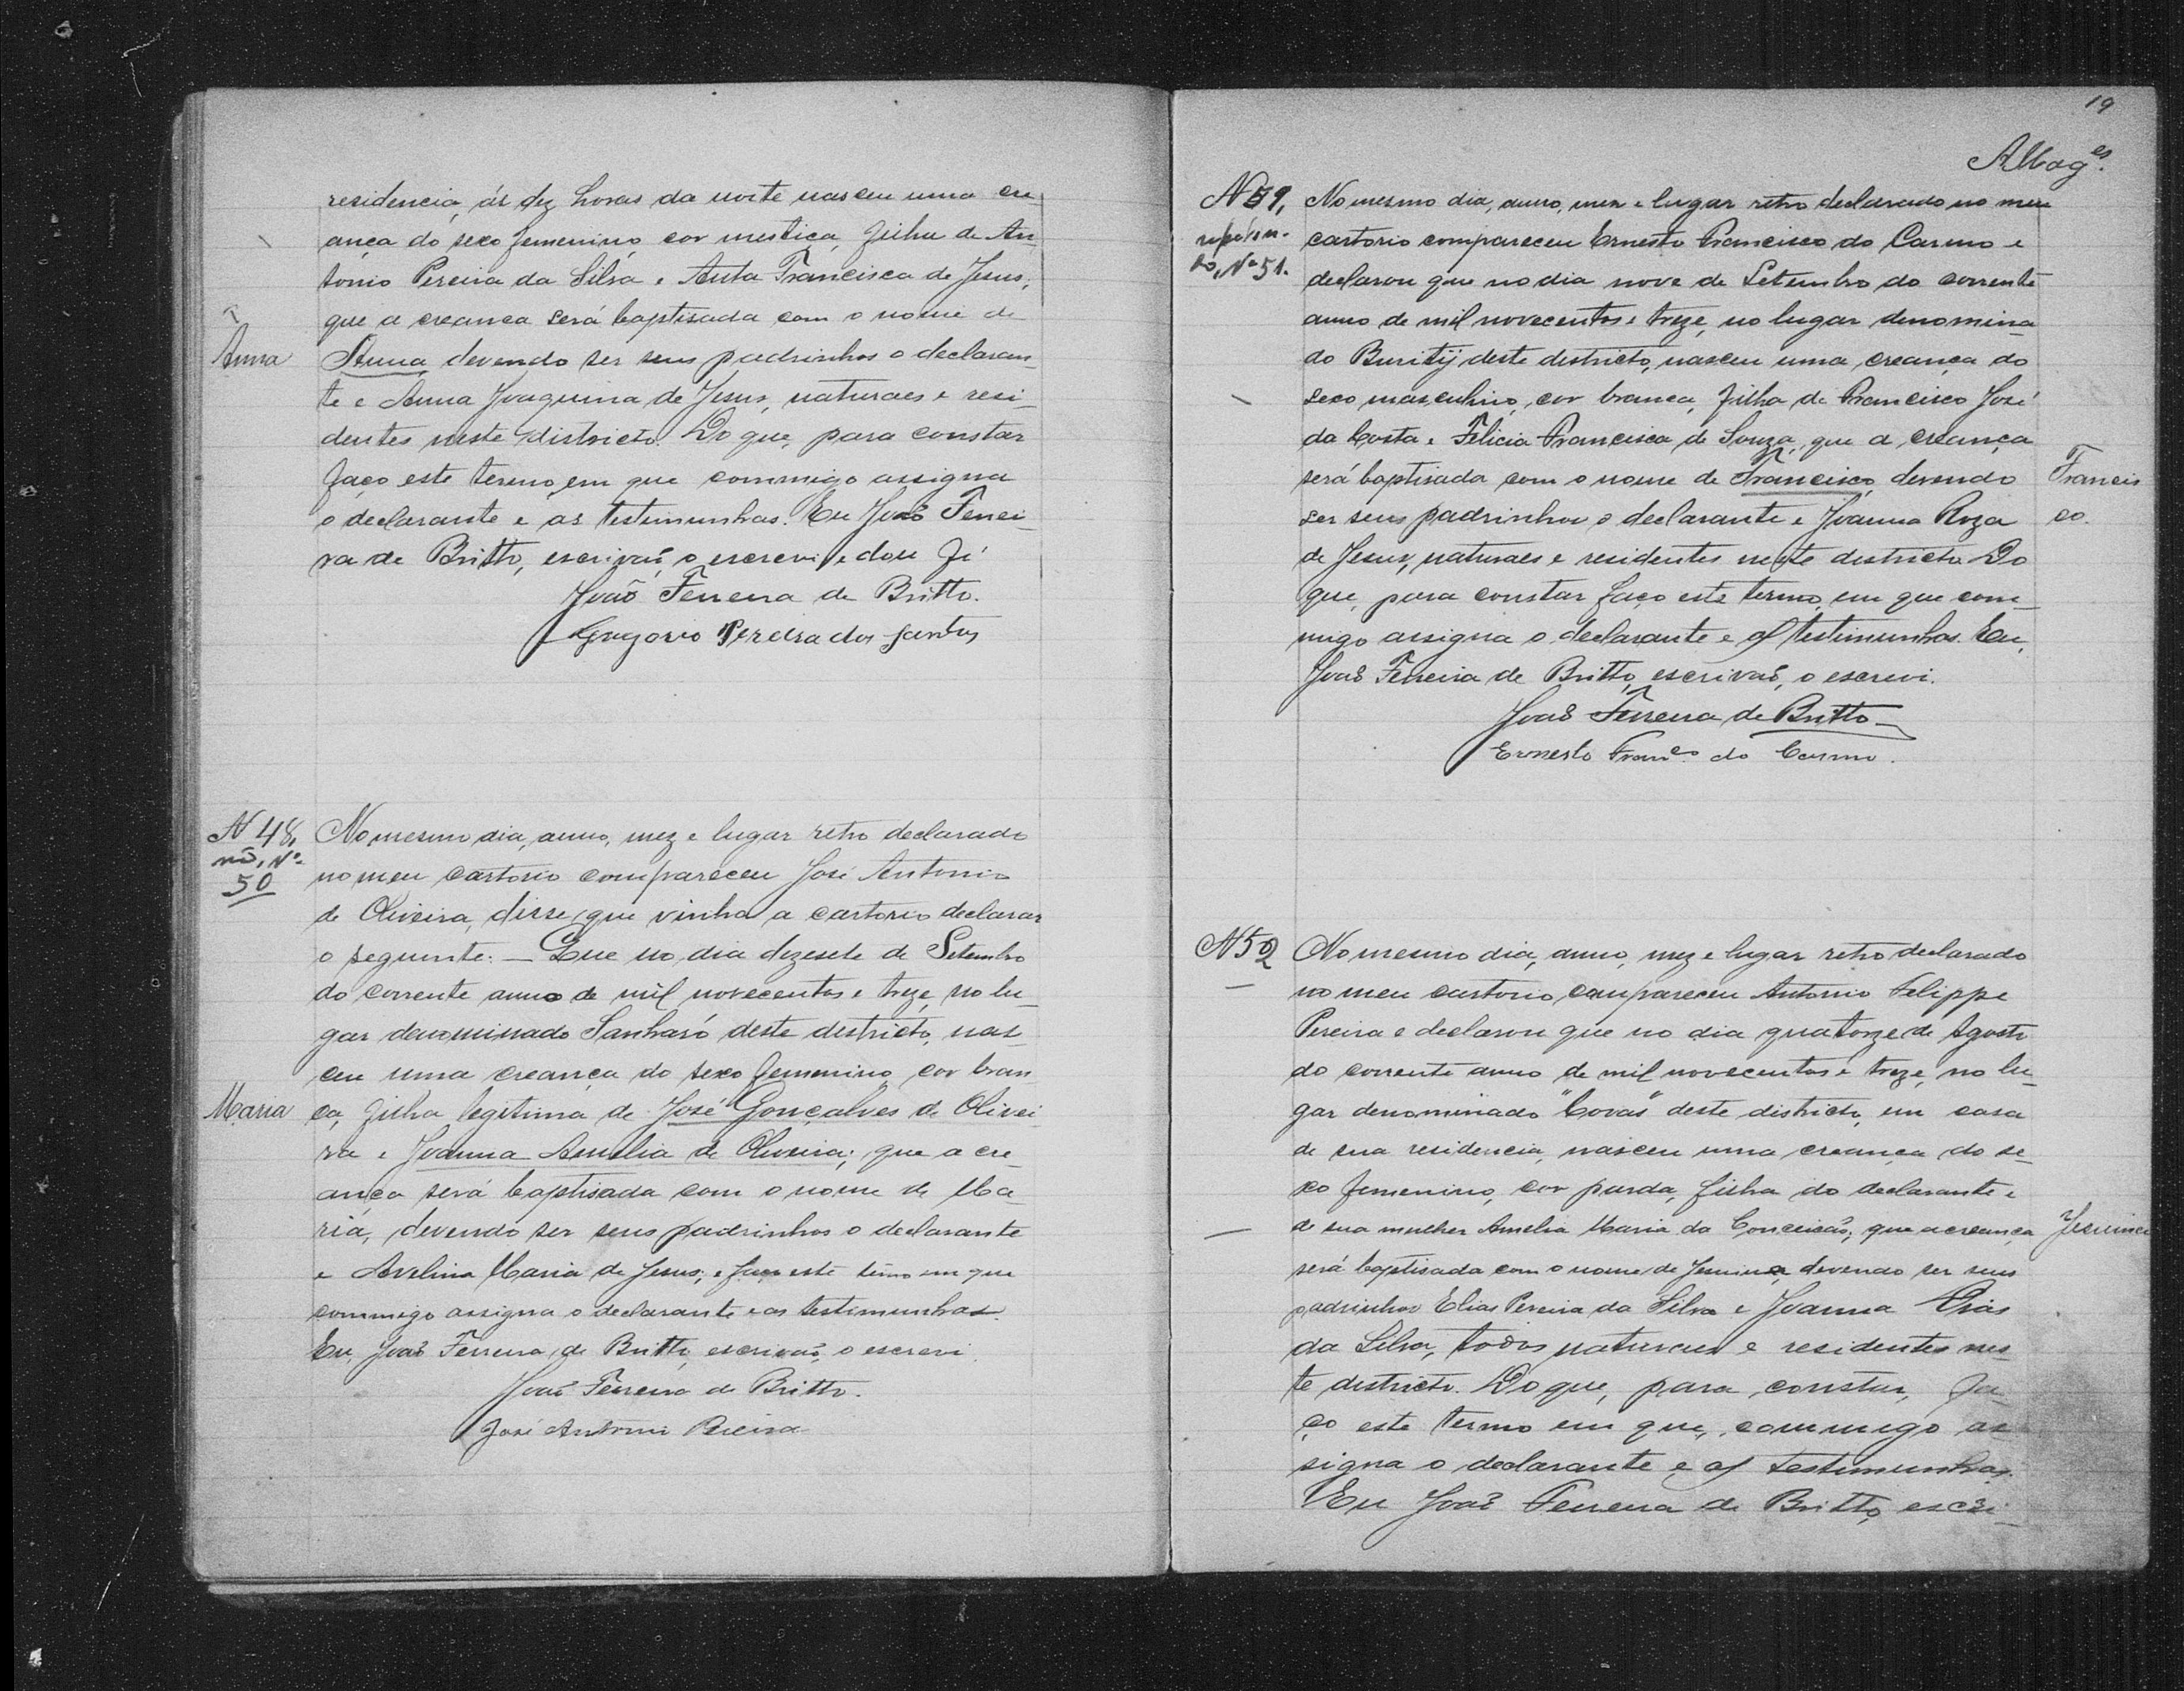 residencia, ás dez horas da noite nasceu uma cre
ança do sexo femenino, cor mestiça, filha de An-
tonio Pereira da Silva e Anta Francisca de Jesus;
que a creança será baptisada com o nome de
Anna
Anna, devendo ser seus padrinhos o declaran-
te e Anna Joaquina de Jesus, naturaes e resi-
dentes neste districto. Do que, para constar
faço este termo, em que commigo assigna
o declarante e as testimunhas. Eu João Ferrei-
ra de Britto, escrivaõ, o escrevi, e dou fé
João Ferreira de Britto.
Gregorio Pereira dos Santos
N 48,
Nº
50
No mesmo dia, anno, mez e lugar retro declarado
no meu cartorio compareceu José Antonio
de Oliveira, disse, que vinha a cartorio declarar
o seguinte: — Que no dia dezesete de Setembro
do corrente anno de mil novecentos e treze, no lu-
gar denominado Sanharó deste districto, nas-
ceu uma creança do sexo femenino, cor bran-
Maria
ca, filha legitima de José Gonçalves de Olivei-
ra e Joanna Amelia de Oliveira; que a cre-
ança será baptisada com o nome de Ma
ria, devendo ser seus padrinhos o declarante
e Avelina Maria de Jesus; e faço este termo em que
commigo assigna o declarante e as testimunhas.
Eu, João Ferreira de Britto, escrivaõ, o escrevi.
João Ferreira de Britto.
José Antonio Pereira
19
AMages.
Nº 51.
No mesmo dia, anno, mez e lugar retro declarado no meu
cartorio compareceu Ernesto Francisco do Carmo e
declarou que no dia nove de Setembro do corrente
anno de mil novecentos e treze, no lugar denomina
do Buritÿ deste districto, nasceu uma creança do
sexo masculino, cor branca, filha de Francisco José
da Costa e Filicia Francisca de Souza, que a creança
será baptisada com o nome de Francisco, devendo
Francis
co.
ser seus padrinhos o declarante e Joanna Roza
de Jesus, naturaes e residentes neste districto. Do
que, para constar faço este termo, em que com-
migo assigna o declarante e as testimunhas. Eu,
João Ferreira de Britto, escrivaõ, o escrevi.
João Ferreira de Britto
Ernesto Franco do Carmo.
N 52
No mesmo dia, anno, mez e lugar retro declarado
no meu cartorio, compareceu Antonio Felippe
Pereira e declarou que no dia quatorze de Agosto
do corrente anno de mil novecentos e treze, no lu-
gar denominado "Covas" deste districto, em casa
de sua residencia, nasceu uma creança do se-
xo femenino, cor parda, filha do declarante e
de sua mulher Amelia Maria da Conceicão; que a creança
Jesuina
será baptisada com o nome de Jesuina, devendo ser seus
padrinhos Elias Pereira da Silva e Joanna Dias
da Silva, todos naturaes e residentes nes-
te districto. Do que, para constar, fa-
ço este termo em que, commigo as-
signa o declarante e as testimunhas.
Eu João Ferreira de Britto, escri-